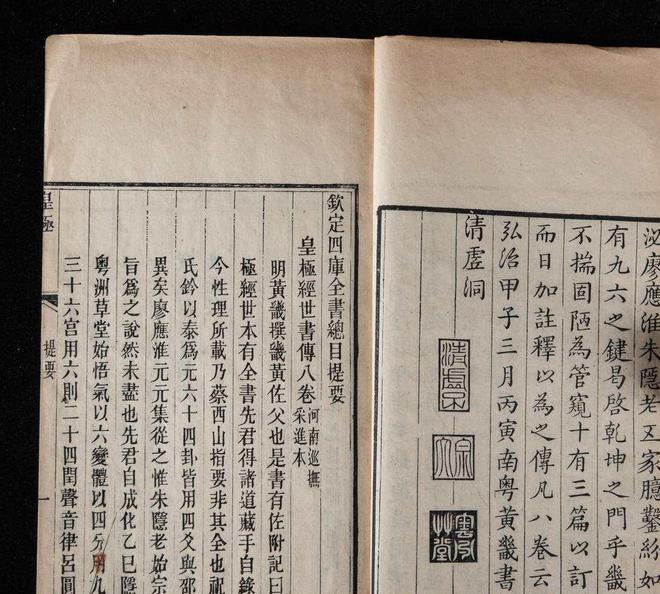 泌廖應淮朱隱老五家臆鑿紛如
有九六之鍵曷啓乾坤之門乎畿
不揣固陋為管窺十有三篇以訂
而日加註釋以為之傳凡八卷云
弘治甲子三月丙寅南粤黄畿書
清虛洞
欽定四庫全書總目提要
皇極經世書傳八卷
河南巡撫
采進本
明黃畿撰畿黃佐父也是書有佐附記曰
極經世本有全書先君得諸道藏手自錄
今性理所載乃蔡西山指要非其全也祝
氏鈐以泰爲元六十四卦皆用四爻與邵
異矣廖應淮元元集從之惟朱隱老始宗
旨爲之說然未盡也先君自成化乙巳隱
粵洲草堂始悟氣以六變體以四分用九
三十六宮用六則二十四閏聲音律呂圓
皇極
提要
一